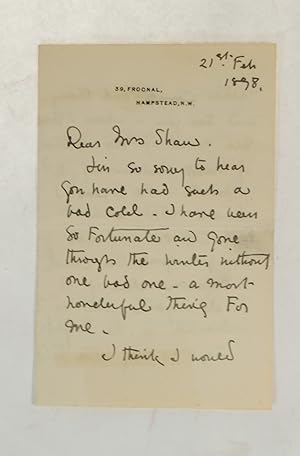 21st Feb
1898.
39, FROGNAL,
HAMPSTEAD, N.W.
Dear Mrs Shaw.
I'm so sorry to hear
you have had such a
bad cold - I have been
so Fortunate and gone
through the winter without
one bad one - a most
wonderful thing For
me -
I think I would